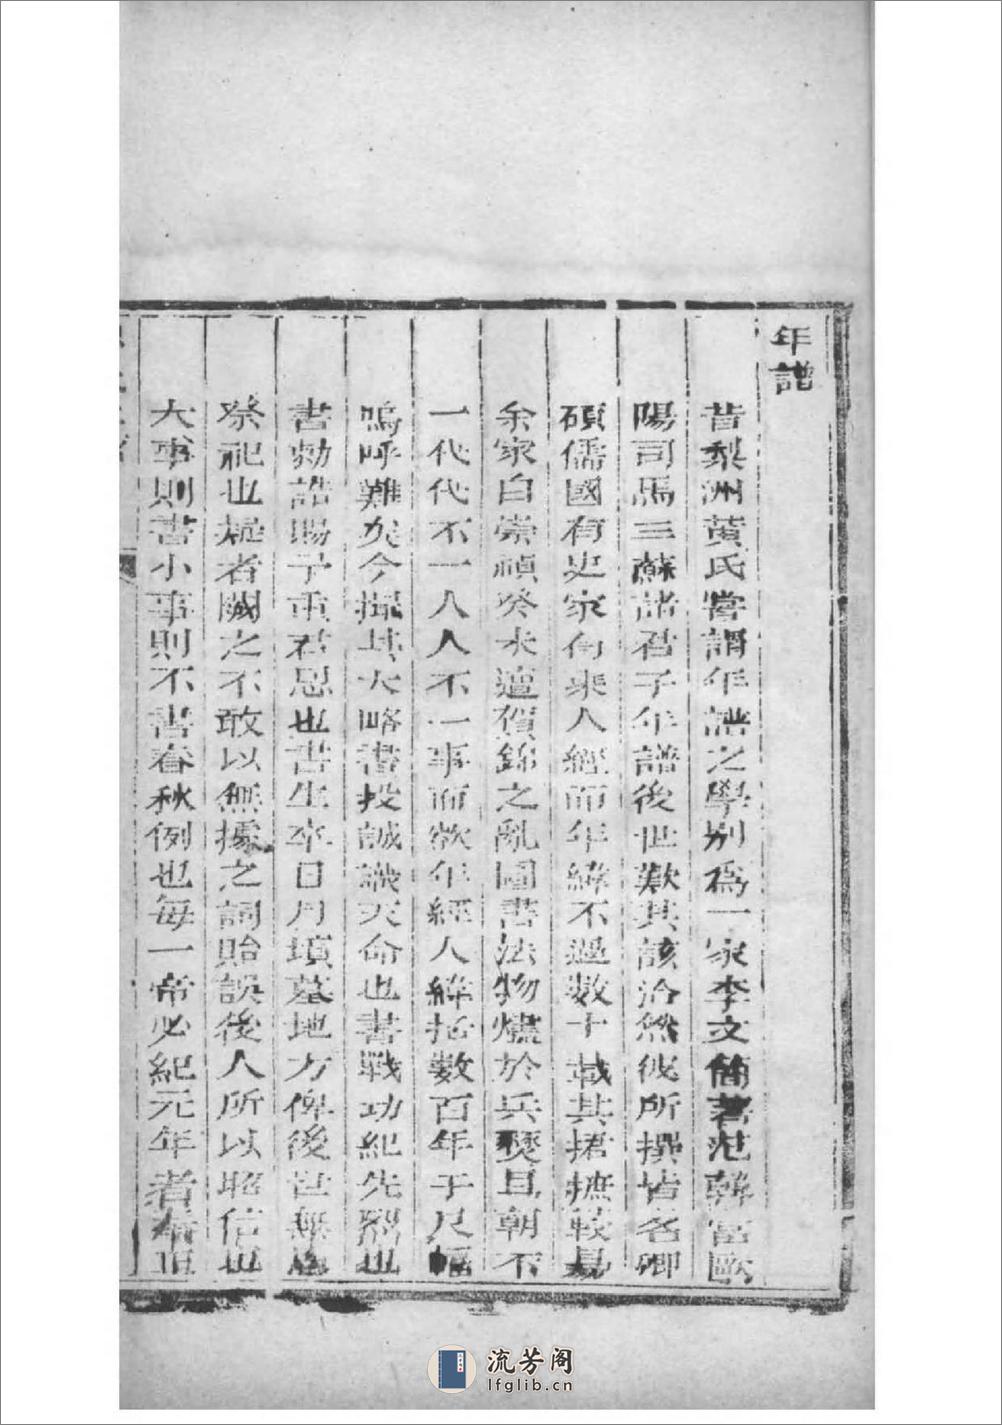 年譜
昔梨洲黃氏嘗謂年譜之學別爲一家李文簡著范韓富歐
陽司馬三蘇諸君子年譜後世歎其該洽然彼所撰皆名卿
碩儒國有史家有乘人經而年緯不過數十載其捃摭較易
余家自崇禎癸未遭賀錦之亂圖書法物燼於兵燹且朝不
一代代不一人人不一事而欲年經人緯括數百年于尺幅
嗚呼難矣今撮其大略書投誠識天命也書戰功紀先烈也
書勅誥賜予重君恩也書生卒日月墳墓地方俾後世無
祭祀也疑者闕之不敢以無據之詞貽誤後人所以昭信也
大事則書小事則不書春秋例也每一帝必紀元年者
流芳阁
lfglib.cn